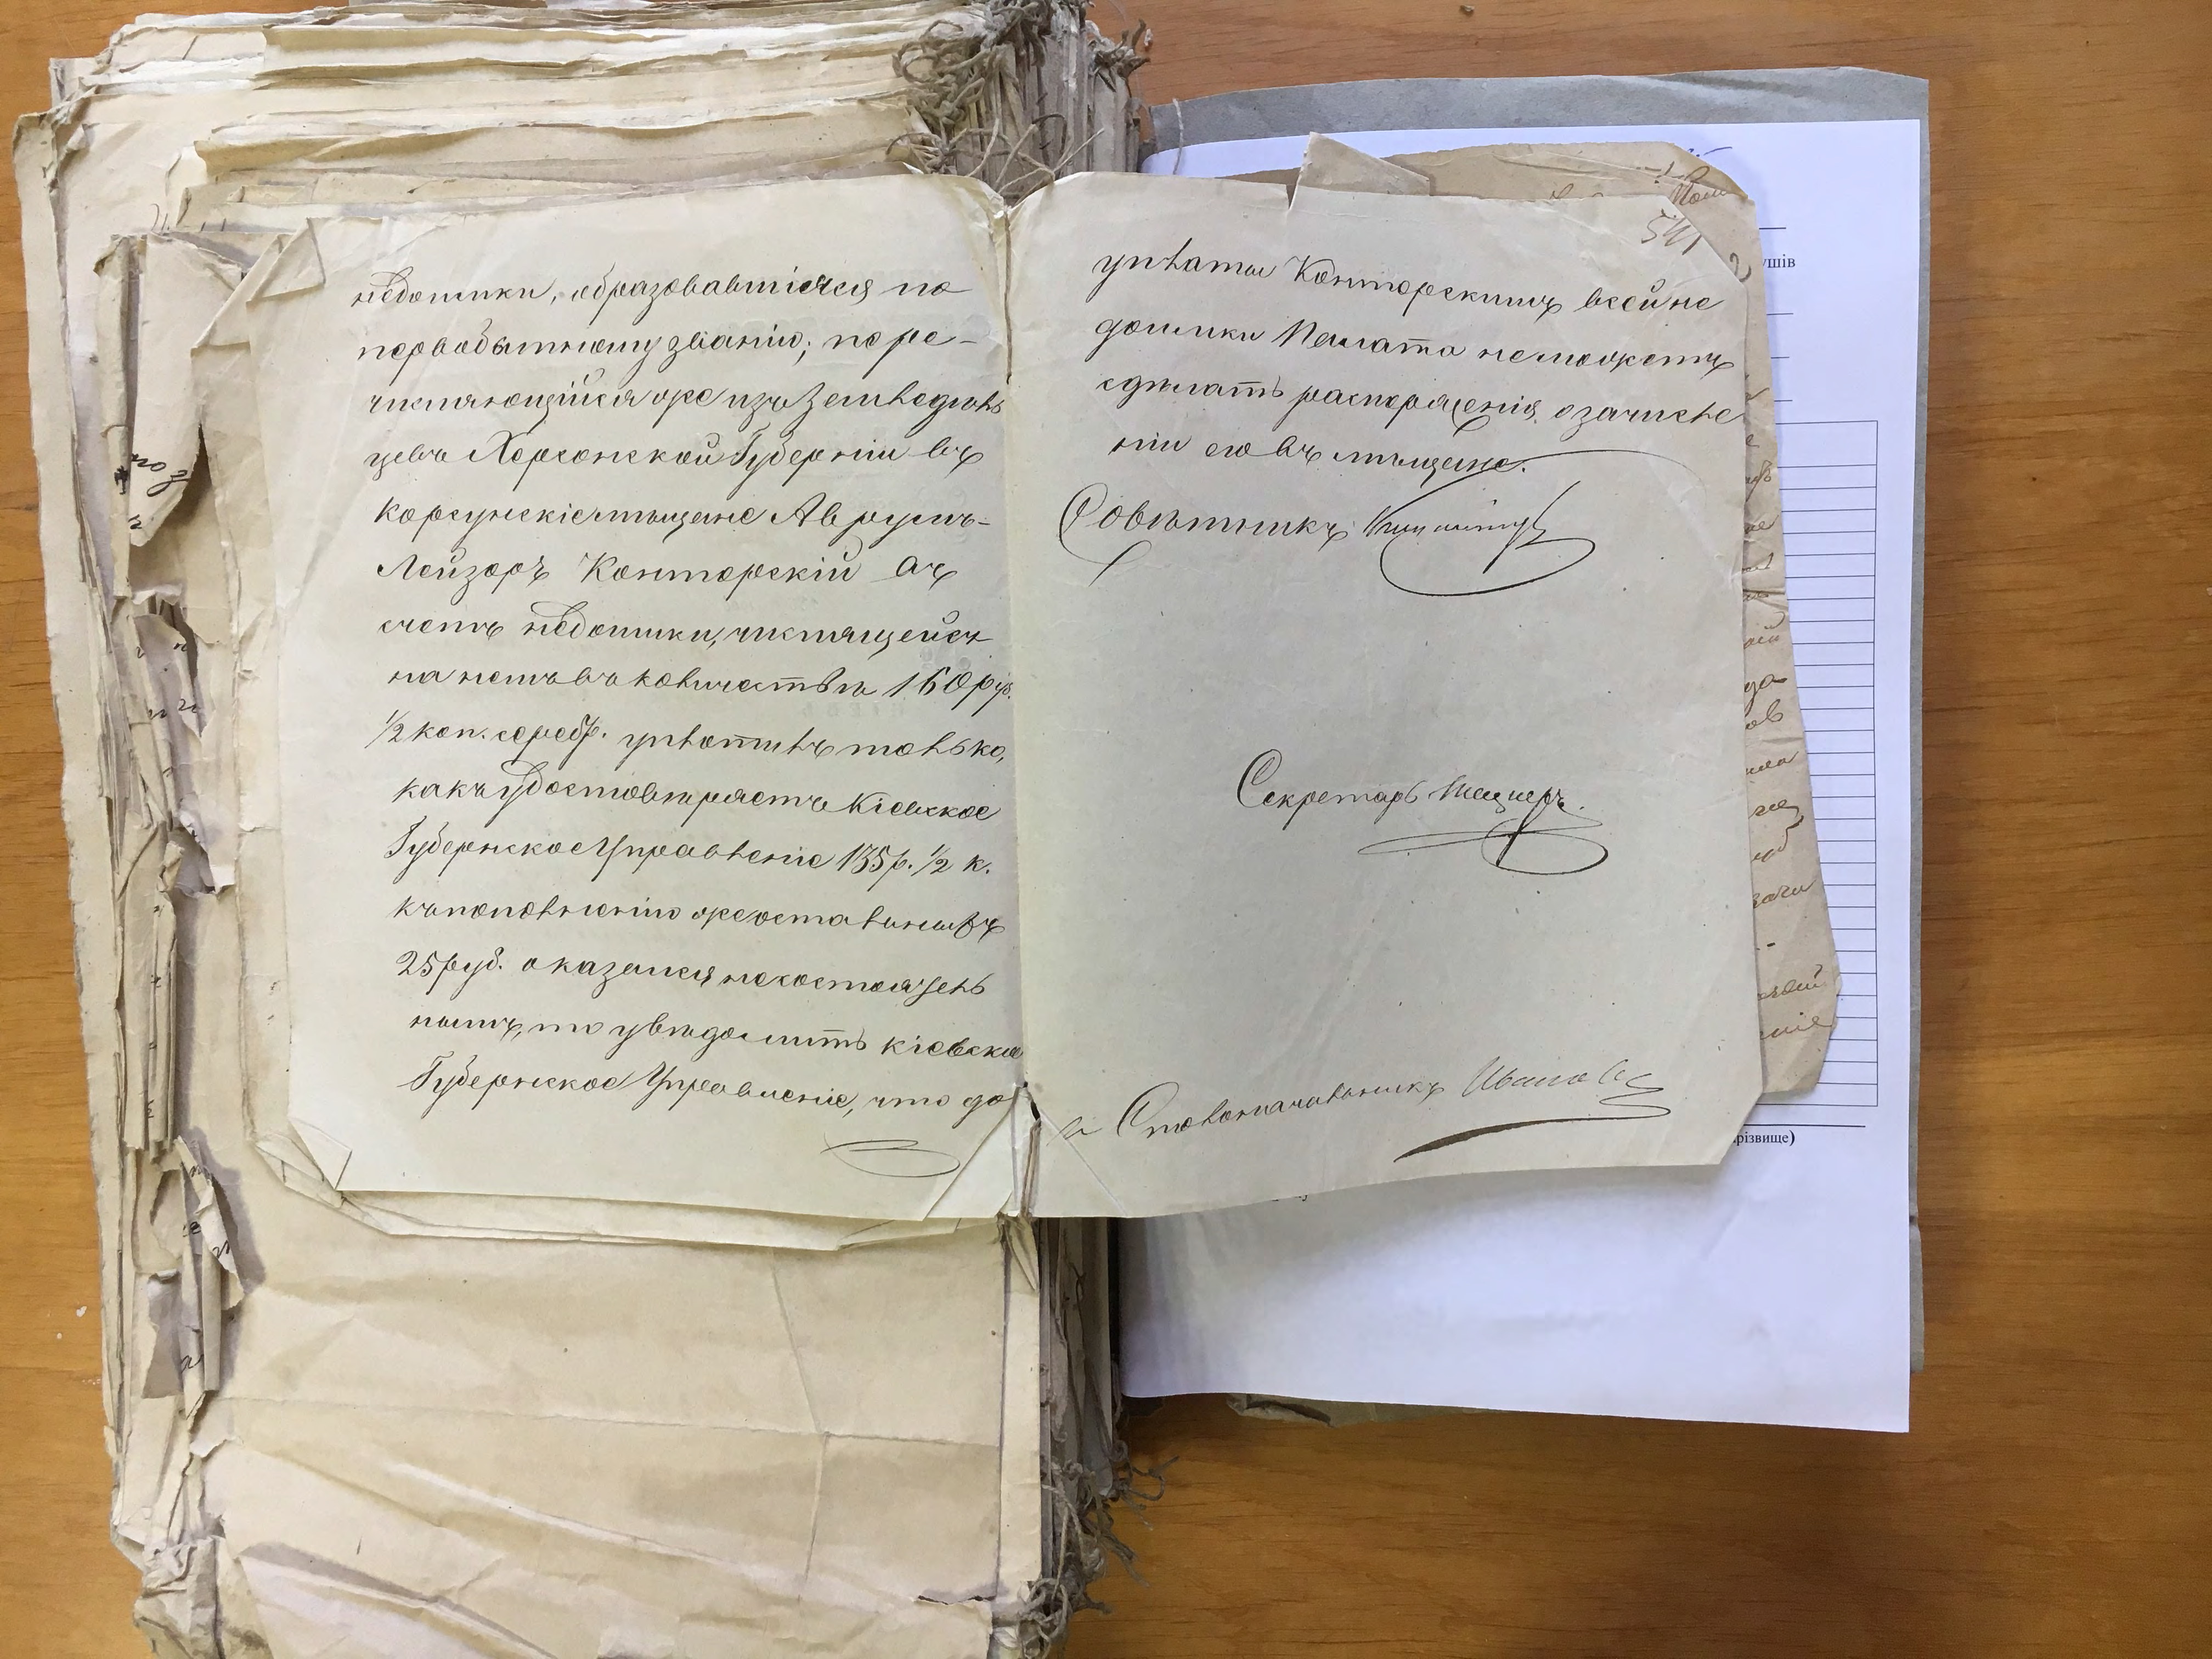 недоимки, образовавшіяся по
первобытному званію; пере-
числяющійся же изъ земледѣль
цевъ Херсонской Губерніи въ
корсунскіе мѣщане Аврумъ-
Лейзоръ Конторскій въ
счетъ недоимки, числящейся
на немъ въ количествѣ 160 руб.
½ коп. серебр. уплотилъ только,
какъ удостовѣряетъ Кіевское
Губернское Управленіе 135 р. ½ к.
къ пополненію же остальныхъ
25 руб. оказался несостоятель
нымъ, то увѣдомить Кіевское
Губернское Управленіе, что до
541
уплаты Конторскимъ всей не
доимки Палата не можетъ
сдѣлать распоряженія о зачисле
ніи его въ мѣщане.
Совѣтникъ
Секретарь
Столоначальникъ Ивановъ
ушів
різвище)